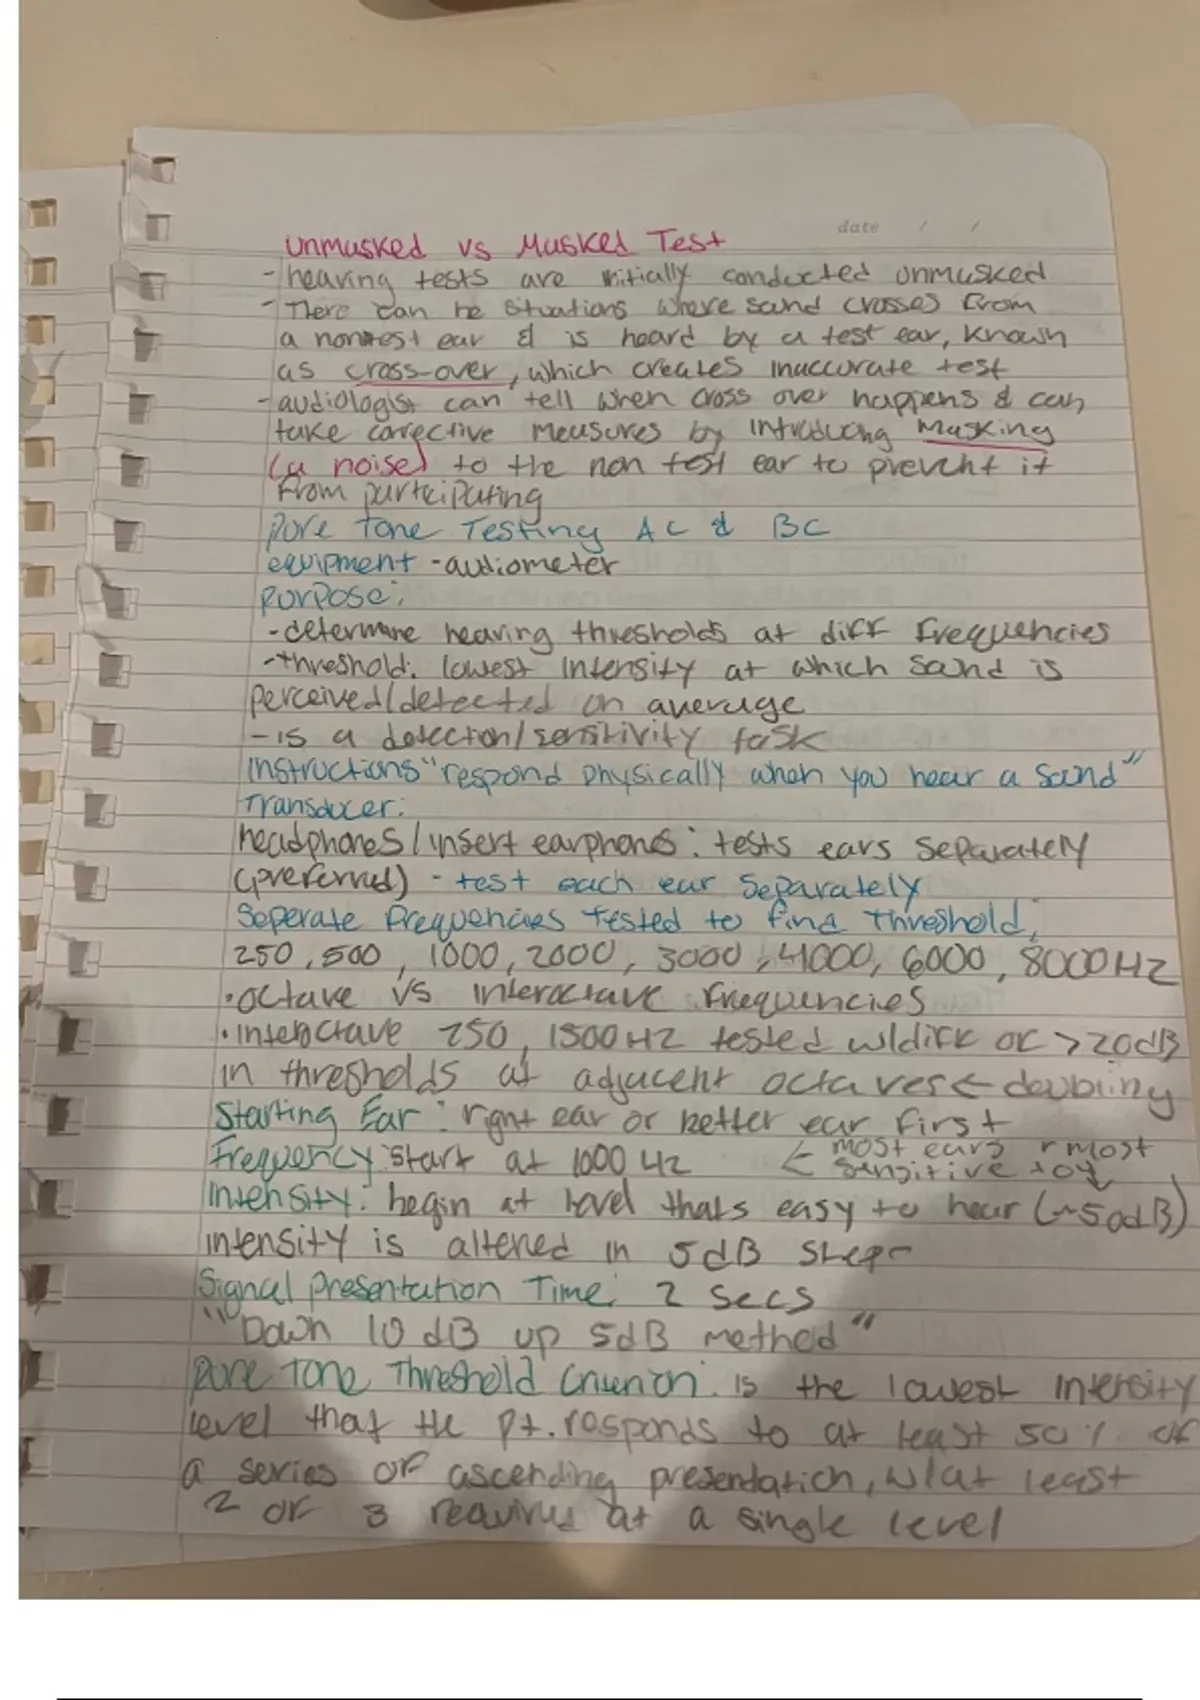 date / /
Unmasked vs Masked Test
- hearing tests are initially conducted unmasked
- There can be situations where sound crosses from
a nontest ear & is heard by a test ear, known
as cross-over, which creates inaccurate test
- audiologist can tell when cross over happens & can
take corrective measures by introducing masking
(a noise) to the non test ear to prevent it
from participating
Pure Tone Testing AC & BC
equipment - audiometer
Purpose:
- determine hearing thresholds at diff frequencies
- threshold: lowest intensity at which sound is
perceived/detected on average
- is a detection/sensitivity task
Instructions "respond physically when you hear a sound"
Transducer:
headphones/insert earphones: tests ears separately
(preferred) - test each ear separately
Seperate frequencies tested to find threshold,
250, 500, 1000, 2000, 3000, 4000, 6000, 8000 HZ
• octave vs interoctave frequencies
• interoctave 750, 1500 HZ tested w/diff of >20dB
in thresholds at adjacent octaves ← doubling
Starting Ear: right ear or better ear first
Frequency: start at 1000 HZ ← most ears r most
sensitive to
Intensity: begin at level thats easy to hear (~50dB)
intensity is altered in 5dB steps
Signal Presentation Time: 2 secs
"Down 10 dB up 5dB method"
Pure Tone Threshold Criterion: is the lowest intensity
level that the pt. responds to at least 50% of
a series of ascending presentation, w/at least
2 of 3 required at a single level